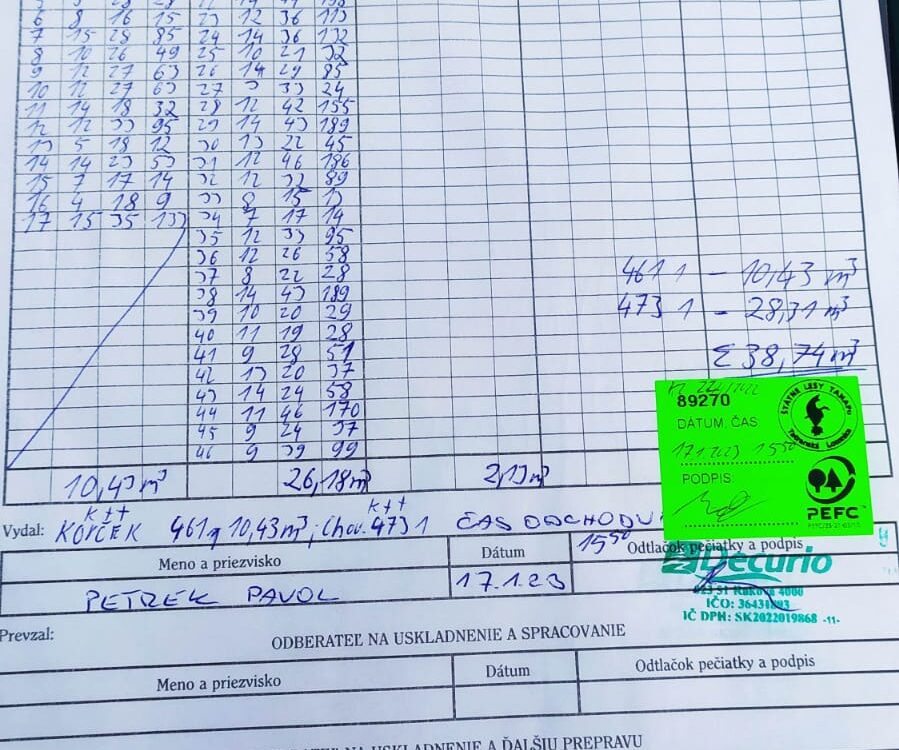 6 8 16 15 23 12 36 113
7 15 28 85 24 14 36 132
8 10 26 49 25 10 21 32
9 12 27 63 26 14 29 85
10 12 27 63 27 3 33 24
11 14 18 32 28 12 42 155
12 12 33 95 29 14 43 189
13 5 18 12 30 13 22 45
14 14 23 53 31 12 46 186
15 7 17 14 32 12 32 89
16 4 18 9 33 8 15 13
17 15 35 133 34 7 17 14
35 12 33 95
36 12 26 58
37 8 22 28
461 1 - 10,43 m³
38 14 43 189
39 10 20 29
473 1 - 28,31 m³
40 11 19 28
41 9 28 51
Σ 38,74 m³
42 13 20 37
43 14 24 58
44 11 46 170
45 9 24 37
46 9 39 99
89270
DÁTUM, ČAS
17.1.2023 15 50
PODPIS:
ŠTÁTNE LESY TANAPu
Tatranská Lomnica
PEFC
10,43 m³ 26,18 m³ 2,13 m³
Vydal: KORČEK 461 10,43 m³; Chov. 473 1 ČAS ODCHODU
15 50
Meno a priezvisko Dátum Odtlačok pečiatky a podpis
PETREK PAVOL 17.1.23
Decurio
023 51 Raková 4000
IČO: 36431893
IČ DPH: SK2022019868 -11-
Prevzal:
ODBERATEĽ NA USKLADNENIE A SPRACOVANIE
Meno a priezvisko Dátum Odtlačok pečiatky a podpis
NA USKLADNENIE A ĎALŠIU PREPRAVU